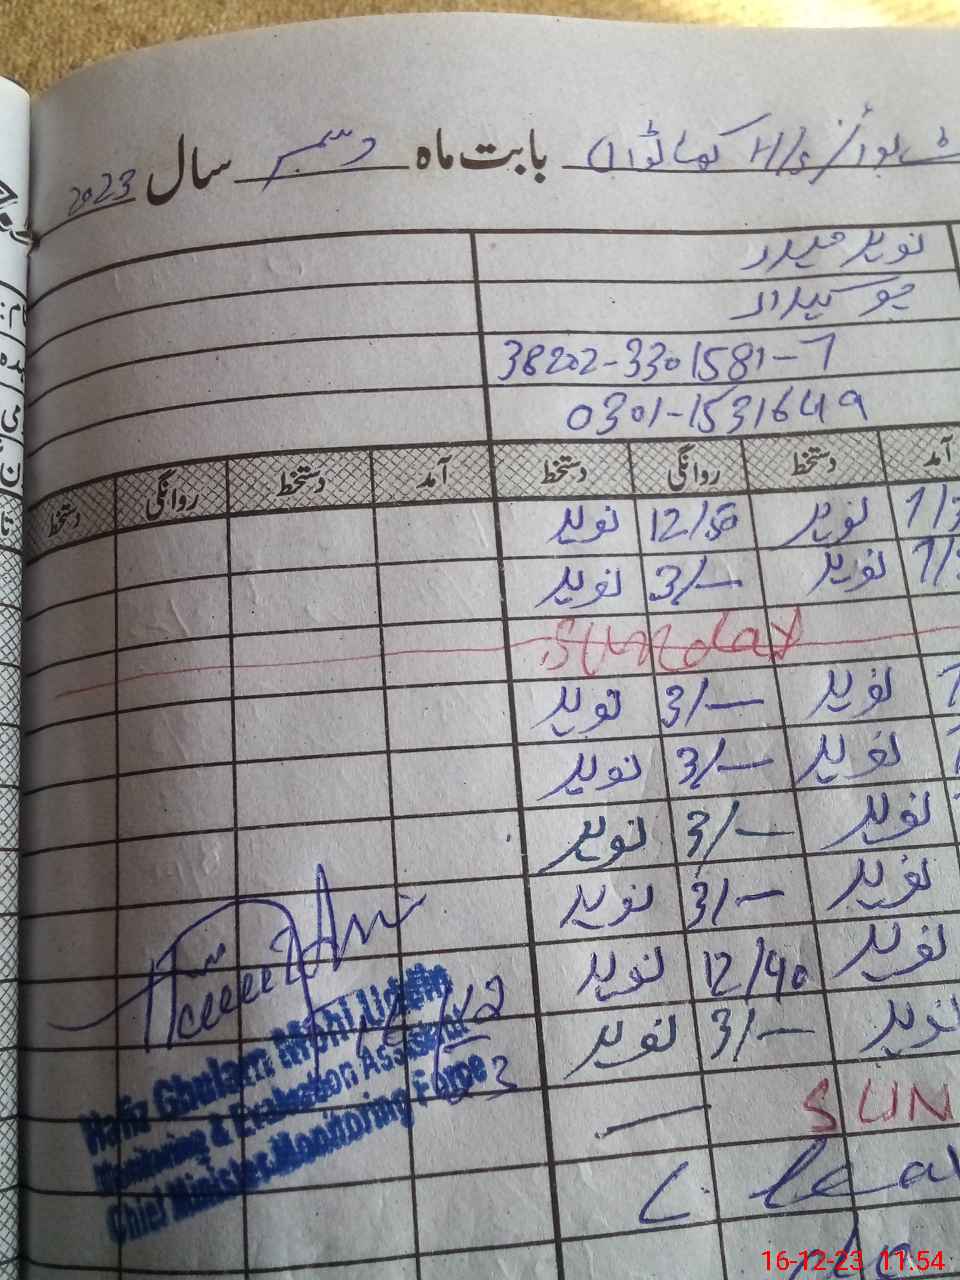 بابت ماہ دسمبر سال 2023
نوید حیدر
چوکیدار
38202-3301581-7
0301-1531649
آمد دستخط روانگی دستخط آمد دستخط روانگی دستخط
نوید 12/50 نوید
نوید 3/— نوید
Sunday
نوید 3/— نوید
نوید 3/— نوید
نوید 3/— نوید
نوید 3/— نوید
نوید 12/40 نوید
نوید 3/— نوید
SUN
Hafiz Ghulam Mohi Uddin
Monitoring & Evaluation Assistant
Chief Minister Monitoring Force
16-12-23 11:54